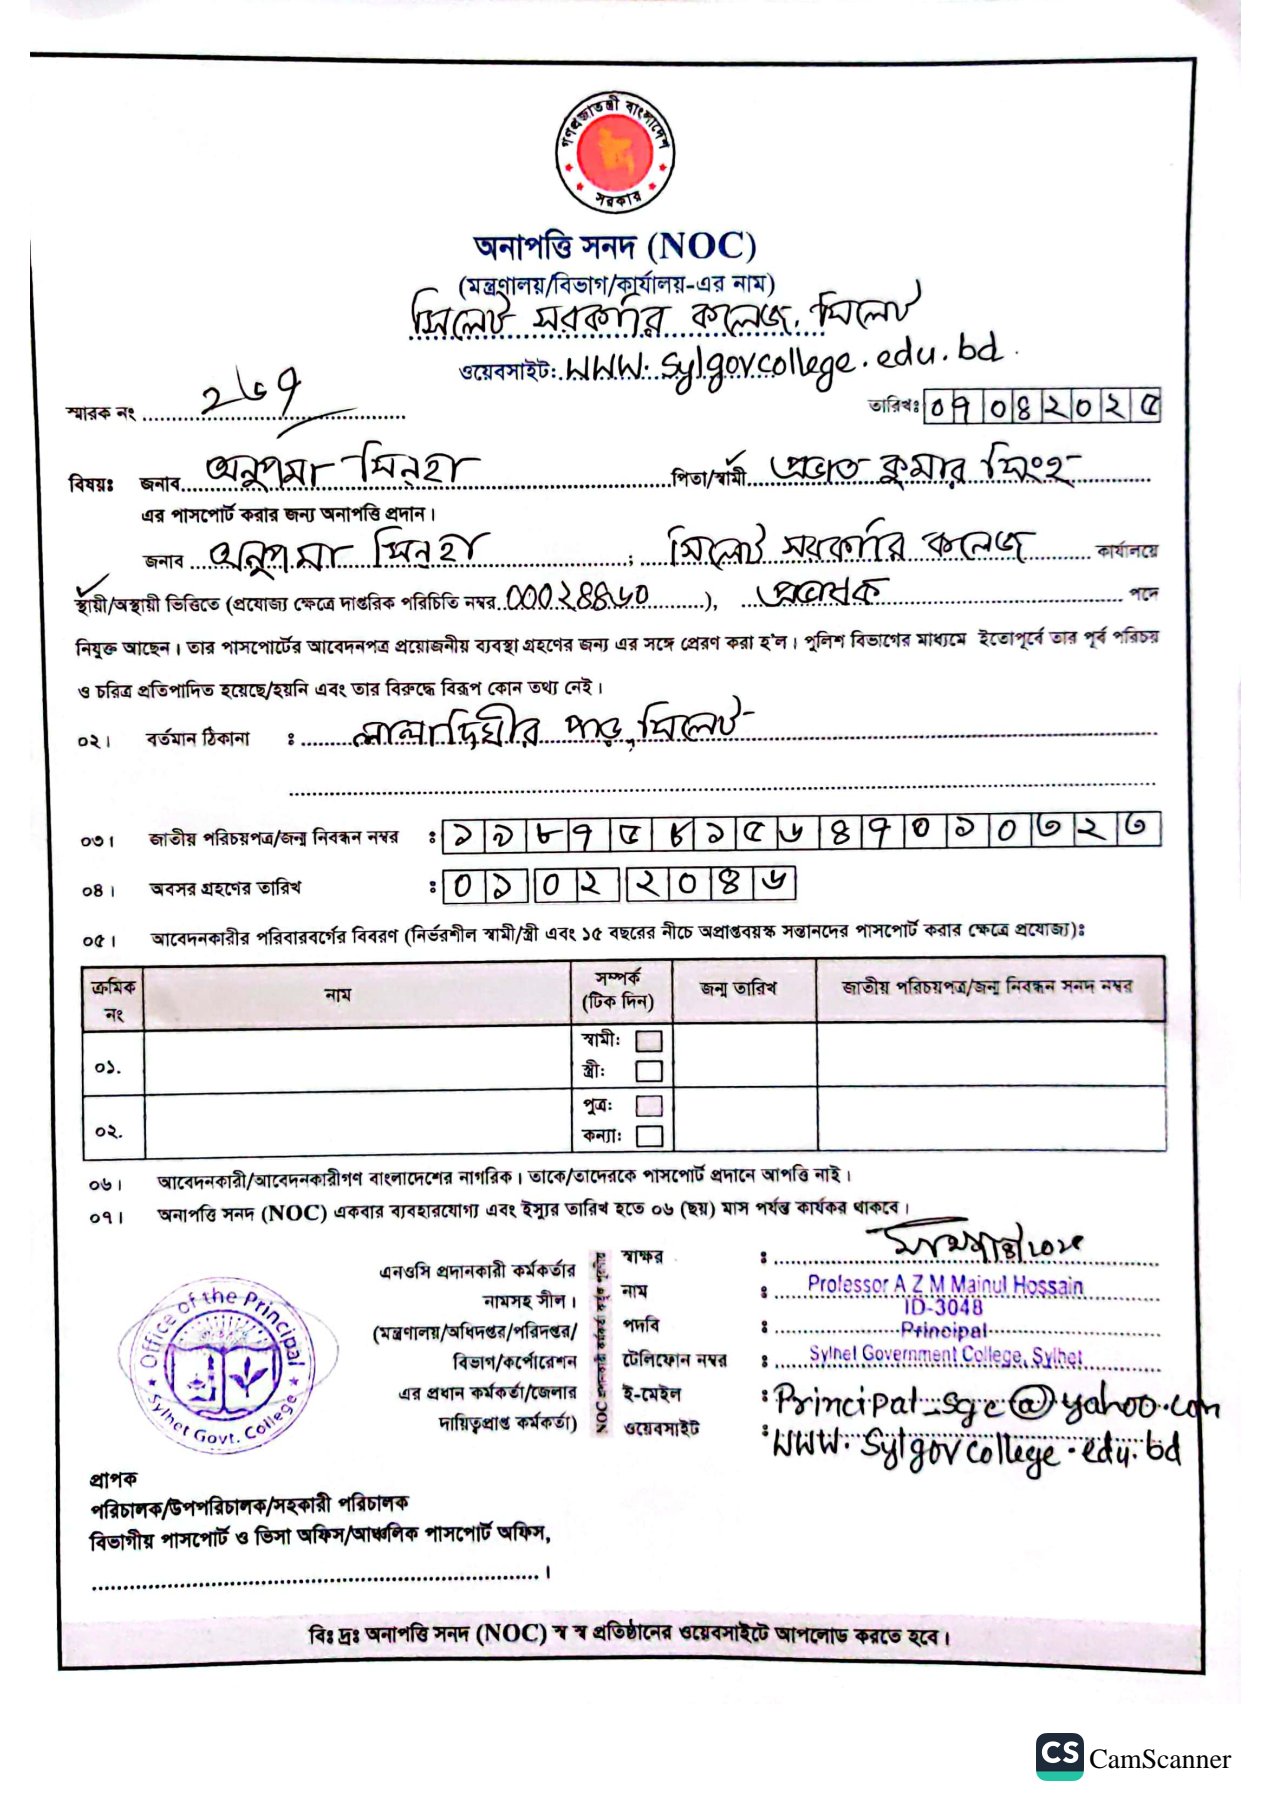 গণপ্রজাতন্ত্রী বাংলাদেশ
সরকার
অনাপত্তি সনদ (NOC)
(মন্ত্রণালয়/বিভাগ/কার্যালয়-এর নাম)
সিলেট সরকারি কলেজ, সিলেট
ওয়েবসাইট: www.sylgovcollege.edu.bd.
স্মারক নং ২৬৭
তারিখঃ ০৭০৪২০২৫
বিষয়ঃ জনাব অনুপমা সিন্‌হা পিতা/স্বামী প্রভাত কুমার সিংহ
এর পাসপোর্ট করার জন্য অনাপত্তি প্রদান।
জনাব অনুপমা সিন্‌হা ; সিলেট সরকারি কলেজ কার্যালয়ে
স্থায়ী/অস্থায়ী ভিত্তিতে (প্রযোজ্য ক্ষেত্রে দাপ্তরিক পরিচিতি নম্বর 000২৪৪৬০), প্রভাষক পদে
নিযুক্ত আছেন। তার পাসপোর্টের আবেদনপত্র প্রয়োজনীয় ব্যবস্থা গ্রহণের জন্য এর সঙ্গে প্রেরণ করা হ'ল। পুলিশ বিভাগের মাধ্যমে ইতোপূর্বে তার পূর্ব পরিচয়
ও চরিত্র প্রতিপাদিত হয়েছে/হয়নি এবং তার বিরুদ্ধে বিরূপ কোন তথ্য নেই।
০২। বর্তমান ঠিকানা : লালাদিঘীর পাড়, সিলেট
০৩। জাতীয় পরিচয়পত্র/জন্ম নিবন্ধন নম্বর : ১৯৮৭৫৮১৫৬৪৭০১০৩২৩
০৪। অবসর গ্রহণের তারিখ : ০১ ০২ ২০৪৬
০৫। আবেদনকারীর পরিবারবর্গের বিবরণ (নির্ভরশীল স্বামী/স্ত্রী এবং ১৫ বছরের নীচে অপ্রাপ্তবয়স্ক সন্তানদের পাসপোর্ট করার ক্ষেত্রে প্রযোজ্য):
ক্রমিক নং নাম সম্পর্ক (টিক দিন) জন্ম তারিখ জাতীয় পরিচয়পত্র/জন্ম নিবন্ধন সনদ নম্বর
০১. স্বামী:
স্ত্রী:
০২. পুত্র:
কন্যা:
০৬। আবেদনকারী/আবেদনকারীগণ বাংলাদেশের নাগরিক। তাকে/তাদেরকে পাসপোর্ট প্রদানে আপত্তি নাই।
০৭। অনাপত্তি সনদ (NOC) একবার ব্যবহারযোগ্য এবং ইস্যুর তারিখ হতে ০৬ (ছয়) মাস পর্যন্ত কার্যকর থাকবে।
Office of the Principal
Sylhet Govt. College
এনওসি প্রদানকারী কর্মকর্তার
নামসহ সীল।
(মন্ত্রণালয়/অধিদপ্তর/পরিদপ্তর/
বিভাগ/কর্পোরেশন
এর প্রধান কর্মকর্তা/জেলার
দায়িত্বপ্রাপ্ত কর্মকর্তা)
স্বাক্ষর :
নাম : Professor A Z M Mainul Hossain
ID-3048
পদবি : Principal
টেলিফোন নম্বর : Sylhet Government College, Sylhet
ই-মেইল : Principal_sgc@yahoo.com
ওয়েবসাইট : www.sylgovcollege.edu.bd
প্রাপক
পরিচালক/উপপরিচালক/সহকারী পরিচালক
বিভাগীয় পাসপোর্ট ও ভিসা অফিস/আঞ্চলিক পাসপোর্ট অফিস,
বিঃ দ্রঃ অনাপত্তি সনদ (NOC) স্ব স্ব প্রতিষ্ঠানের ওয়েবসাইটে আপলোড করতে হবে।
CS CamScanner